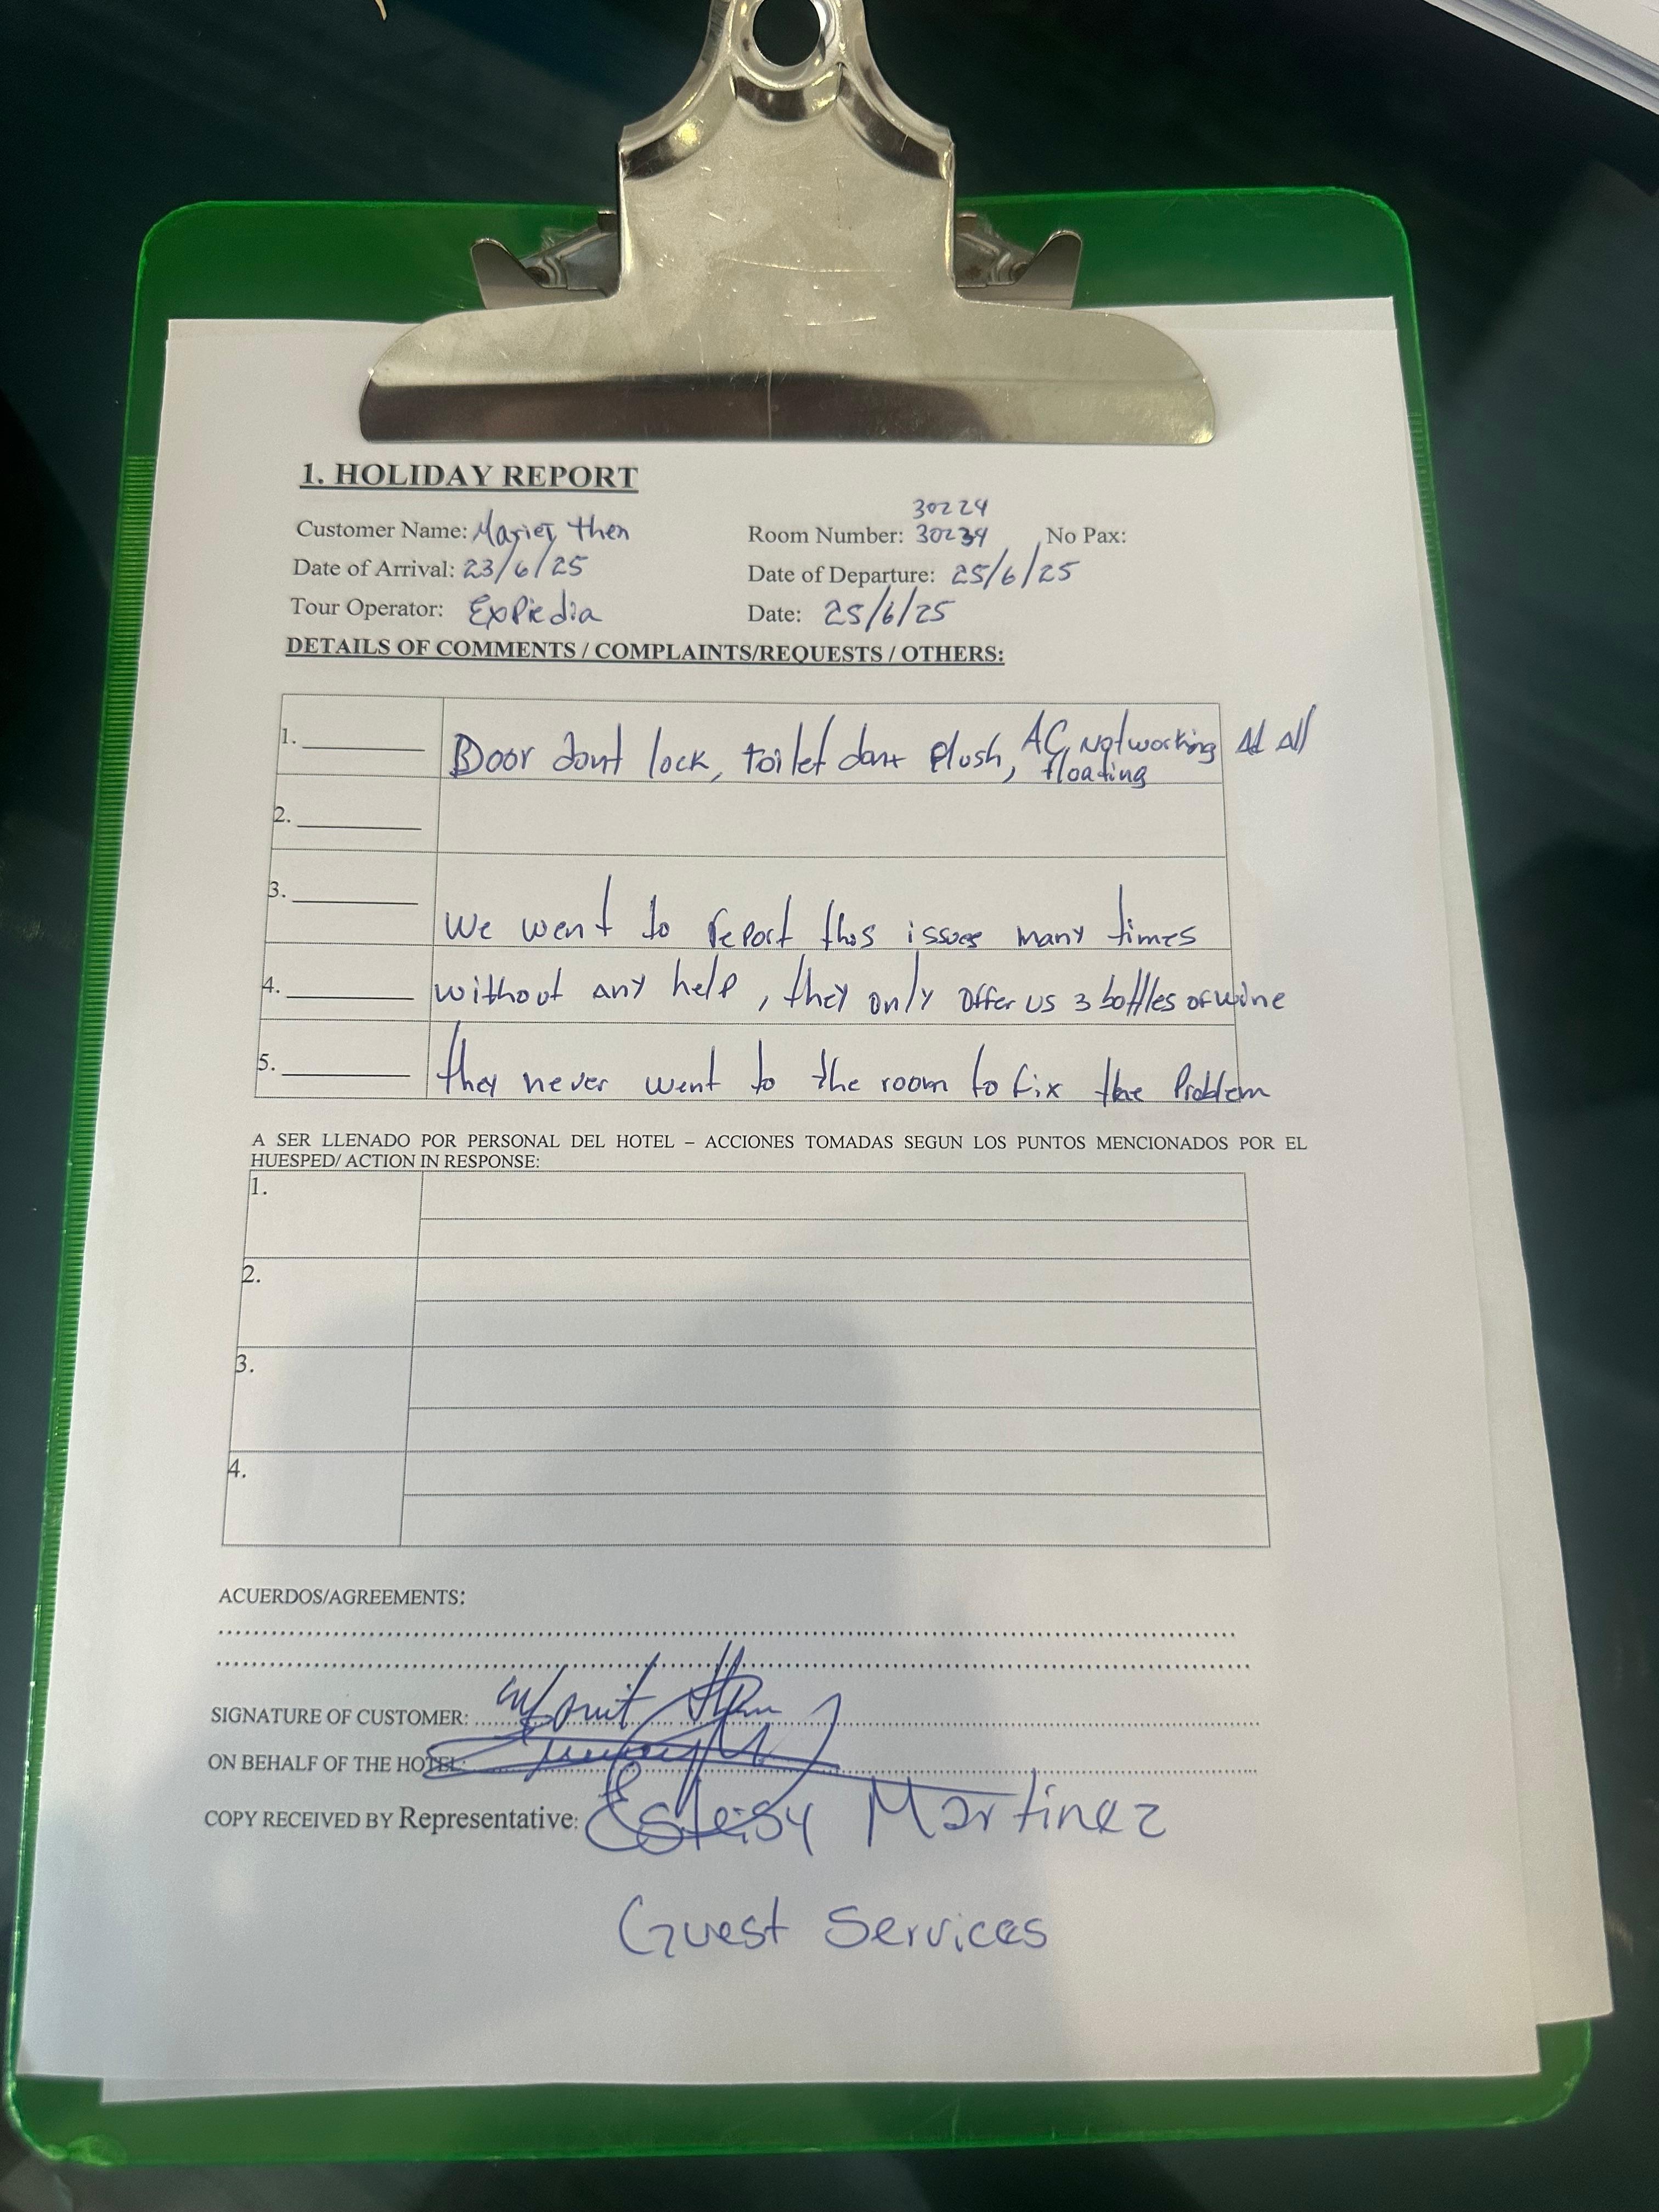 1. HOLIDAY REPORT
30224
Customer Name: Mariet then Room Number: 30234 No Pax:
Date of Arrival: 23/6/25 Date of Departure: 25/6/25
Tour Operator: Expiedia Date: 25/6/25
DETAILS OF COMMENTS / COMPLAINTS/REQUESTS / OTHERS:
1. Door dont lock, toilet dont flush, AC Not working At All
floading
2.
3. We went to report this issues many times
4. without any help, they only offer us 3 bottles of wine
5. they never went to the room to fix the Problem
A SER LLENADO POR PERSONAL DEL HOTEL – ACCIONES TOMADAS SEGUN LOS PUNTOS MENCIONADOS POR EL
HUESPED/ ACTION IN RESPONSE:
1.
2.
3.
4.
ACUERDOS/AGREEMENTS:
SIGNATURE OF CUSTOMER:
ON BEHALF OF THE HOTEL:
COPY RECEIVED BY Representative: Esteisy Martinez
Guest Services